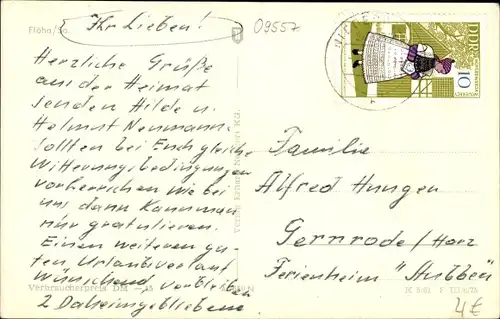 Flöha/Sa.
Ihr Lieben!
09557
Herzliche Grüße
aus der Heimat
senden Hilde u.
Helmut Neumann.
Sollten bei Euch gleiche
Witterungsbedingungen
vorherrschen wie bei
uns dann kann man
nur gratulieren.
Einen weiteren gu-
ten Urlaubsverlauf
wünschend verbleiben
2 Daheimgebliebene
Verbraucherpreis DM
DDR
10
Familie
Alfred Hungen
Gernrode/Harz
Ferienheim "Stubben"
4€